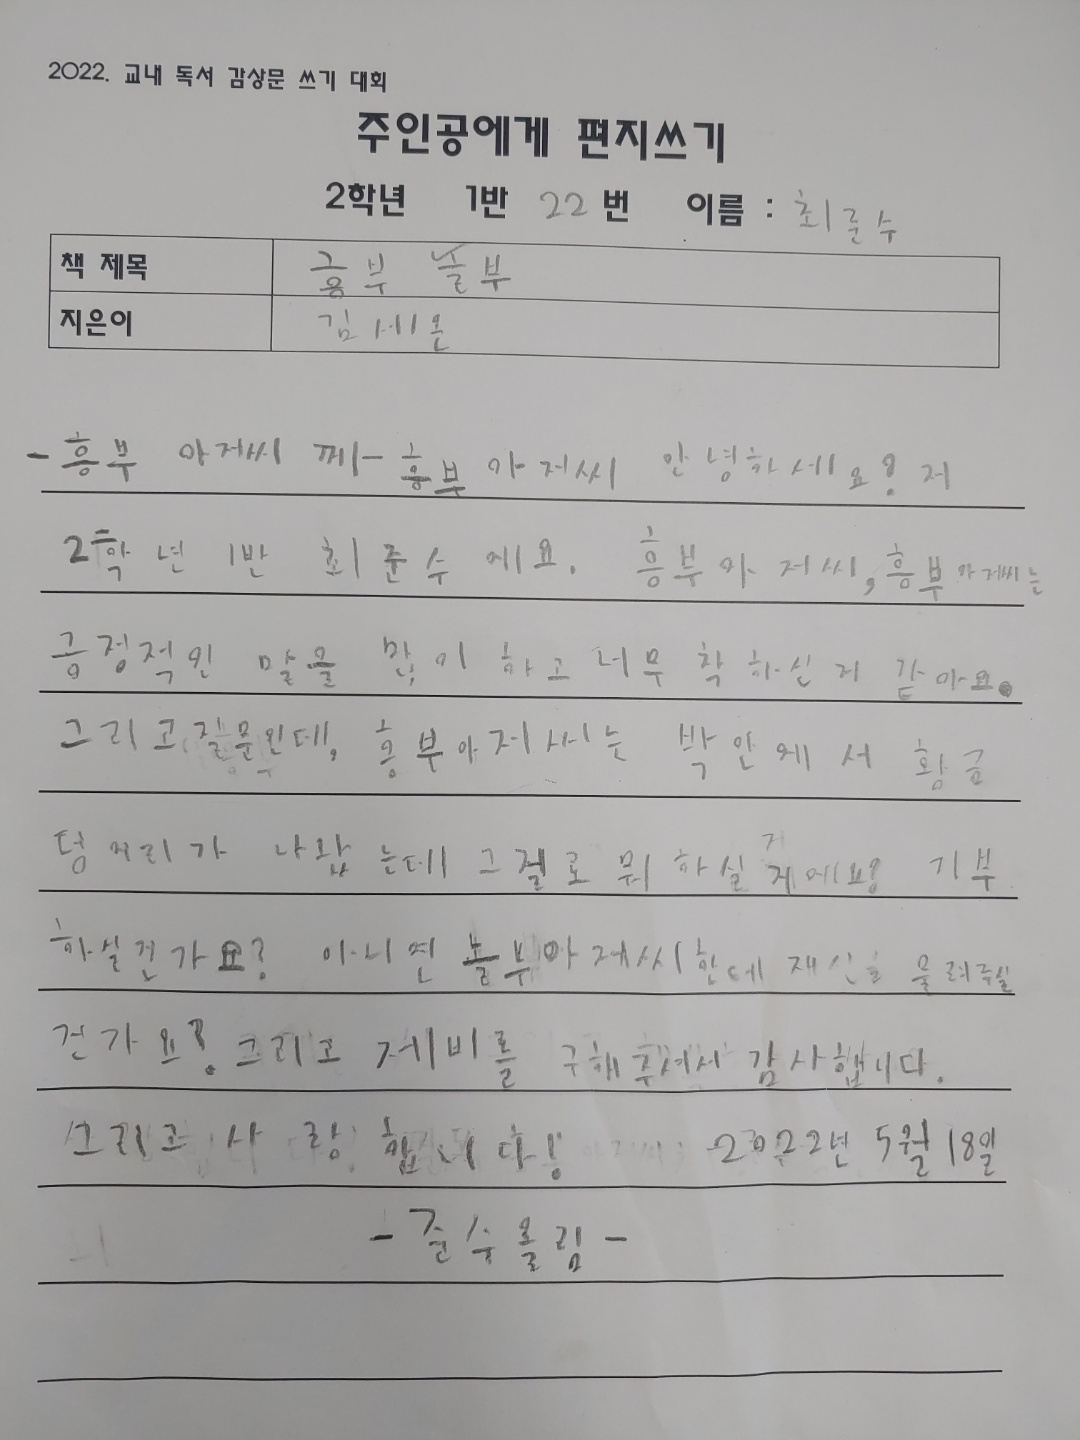 2022. 교내 독서 감상문 쓰기 대회
주인공에게 편지쓰기
2학년 1반 22번 이름 : 최준수
책 제목 흥부 놀부
지은이 김세온
-흥부 아저씨 께- 흥부 아저씨 안녕하세요? 저
2학년 1반 최준수 에요. 흥부아저씨, 흥부아저씨는
긍정적인 말을 많이 하고 너무 착하신거 같아요.
그리고 질문인데, 흥부아저씨는 박안에서 황금
덩어리가 나왔는데 그걸로 뭐하실 거에요? 기부
하실건가요? 아니면 놀부아저씨한테 재산을 물려주실
건가요? 그리고 제비를 구해주셔서 감사합니다.
그리고 사랑합니다! 2022년 5월 18일
-준수올림-